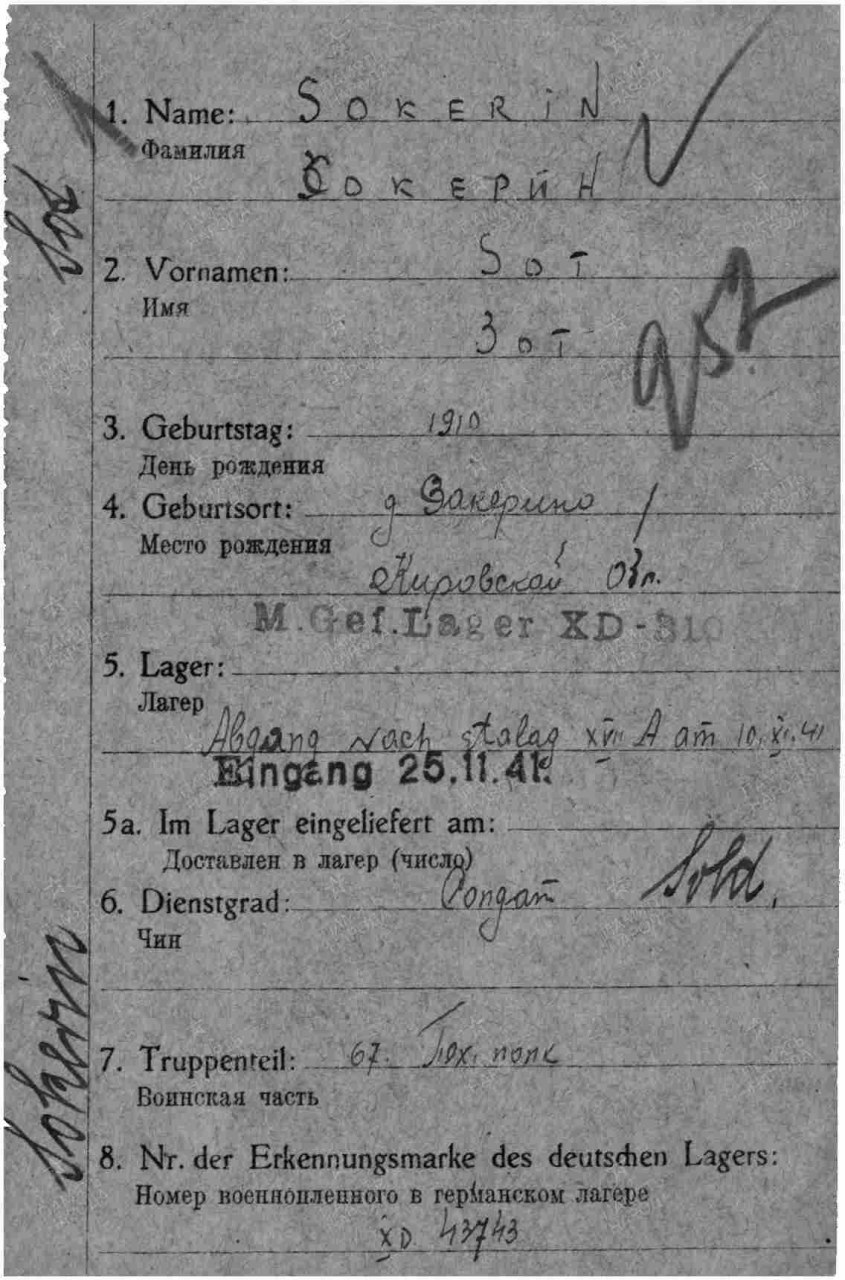 1. Name: SOKERIN
Фамилия
Сокерин
2. Vornamen: Sot
Имя
Зот
3. Geburtstag: 1910
День рождения
4. Geburtsort: д Закерино
Место рождения
Кировской Обл.
M.Gef.Lager XD-310
5. Lager:
Лагер
Abgang nach Stalag XVII A am 10.XI.41
Eingang 25.11.41.
5a. Im Lager eingeliefert am:
Доставлен в лагер (число)
6. Dienstgrad: Солдат Sold.
Чин
7. Truppenteil: 67. полк
Воинская часть
8. Nr. der Erkennungsmarke des deutschen Lagers:
Номер военнопленного в германском лагере
XD 43743
Sot
Sokerin